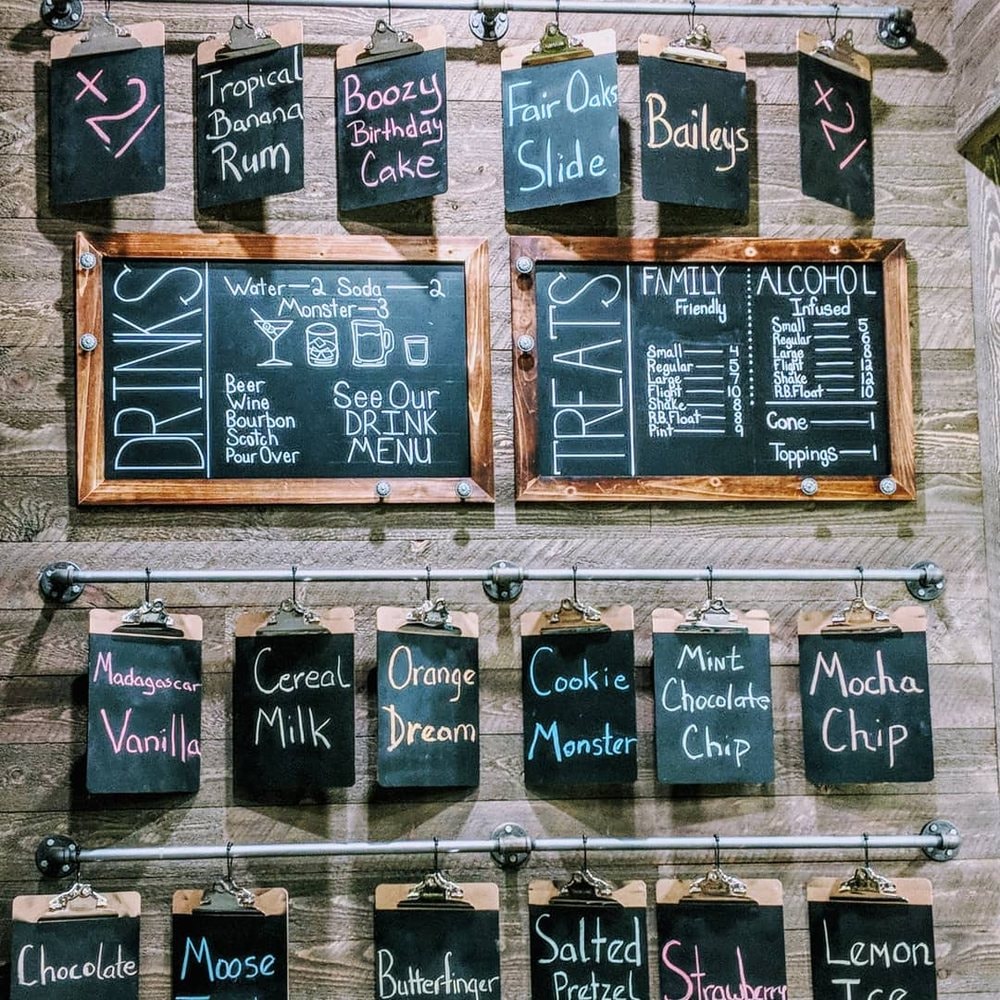 x21
Tropical
Banana
Rum
Boozy
Birthday
Cake
Fair Oaks
Slide
Baileys
x21
DRINKS
Water—2 Soda—2
Monster—3
Beer
Wine
Bourbon
Scotch
Pour Over
See Our
DRINK
MENU
TREATS
FAMILY
Friendly
Small—4
Regular—5
Large—7
Flight—10
Shake—8
R.B.Float—8
Pint—9
ALCOHOL
Infused
Small—5
Regular—6
Large—8
Flight—12
Shake—12
R.B.Float—10
Cone—1
Toppings—1
Madagascar
Vanilla
Cereal
Milk
Orange
Dream
Cookie
Monster
Mint
Chocolate
Chip
Mocha
Chip
Chocolate
Moose
Butterfinger
Salted
Pretzel
Strawberry
Lemon
Ice